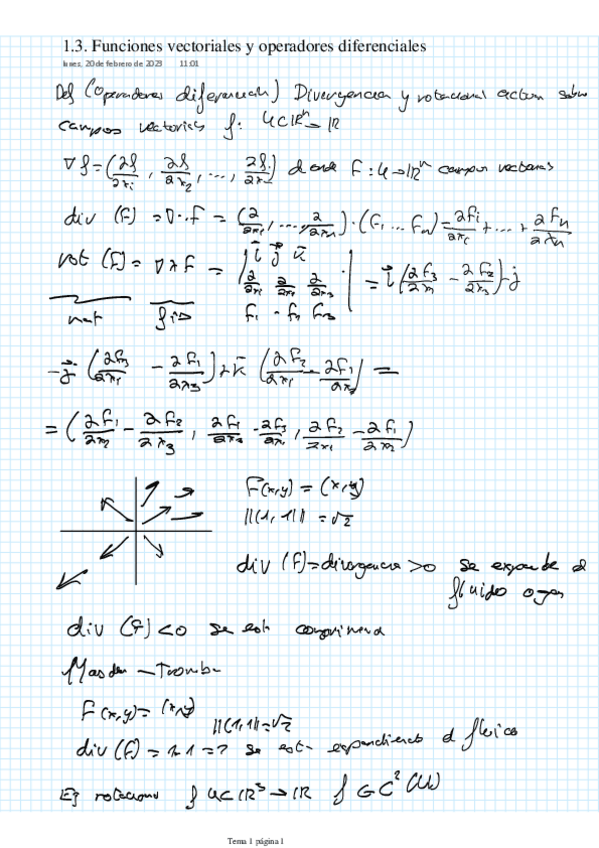 1.3. Funciones vectoriales y operadores diferenciales
lunes, 20 de febrero de 2023 11:01
Def (operadores diferenciales) Divergencia y rotacional actúan sobre
campos vectoriales f: U⊂ℝⁿ→ℝ
∇f = (∂f/∂x₁, ∂f/∂x₂, ..., ∂f/∂xₙ) donde F: U→ℝⁿ campos vectoriales
div (F) = ∇·F = (∂/∂x₁, ..., ∂/∂xₙ)·(F₁ ... Fₙ) = ∂F₁/∂x₁ + ... + ∂Fₙ/∂xₙ
rot (F) = ∇×F = | i j k
∂/∂x₁ ∂/∂x₂ ∂/∂x₃ | = i (∂F₃/∂x₂ - ∂F₂/∂x₃) - j
mat fis F₁ F₂ F₃
-j (∂F₃/∂x₁ - ∂F₁/∂x₃) + k (∂F₂/∂x₁ - ∂F₁/∂x₂) =
= (∂F₃/∂x₂ - ∂F₂/∂x₃, ∂F₁/∂x₃ - ∂F₃/∂x₁, ∂F₂/∂x₁ - ∂F₁/∂x₂)
F(x,y) = (x,y)
||(1,1)|| = √2
div (F) = divergencia >0 se expande el
fluido
div (F) <0 se está
F(x,y) = (x,y)
||(1,1)|| = √2
div (F) = 1+1 = 2 se está expandiendo el fluido
Ej rotacional f U⊂ℝ³→ℝ f ∈ C² (U)
Tema 1 página 1